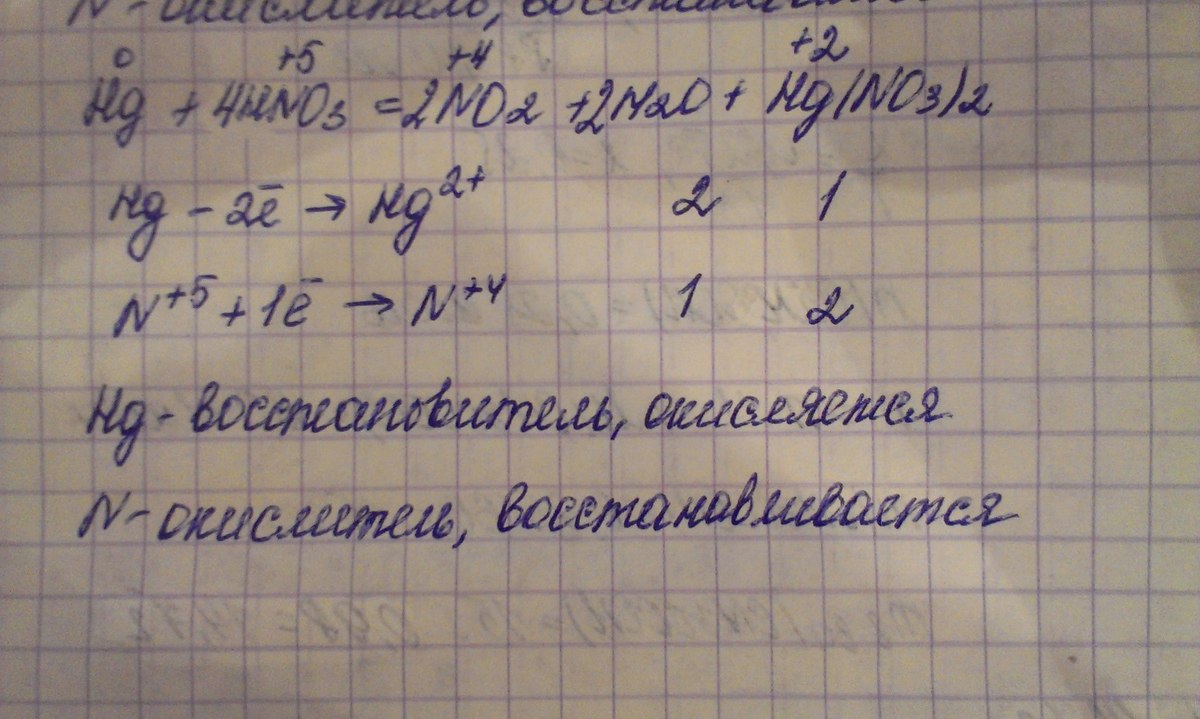 N - окислитель,
0 +5 +4 +2
Hg + 4HNO3 = 2NO2 + 2H2O + Hg(NO3)2
Hg - 2ē → Hg2+ 2 1
N+5 + 1ē → N+4 1 2
Hg - восстановитель, окисляется
N - окислитель, восстанавливается